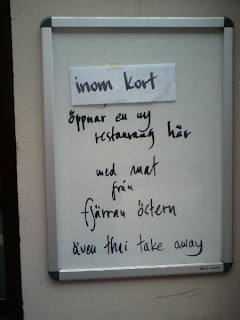 inom kort
öppnar en ny
restaurang här
med mat
från
fjärran östern
även thai take away